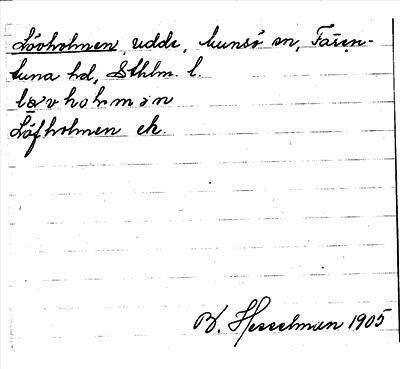 Lövholmen, udde, Munsö sn, Fären-
tuna hd, Sthlm. l.
løvholmən
Löfholmen ek.
B. Hesselman 1905